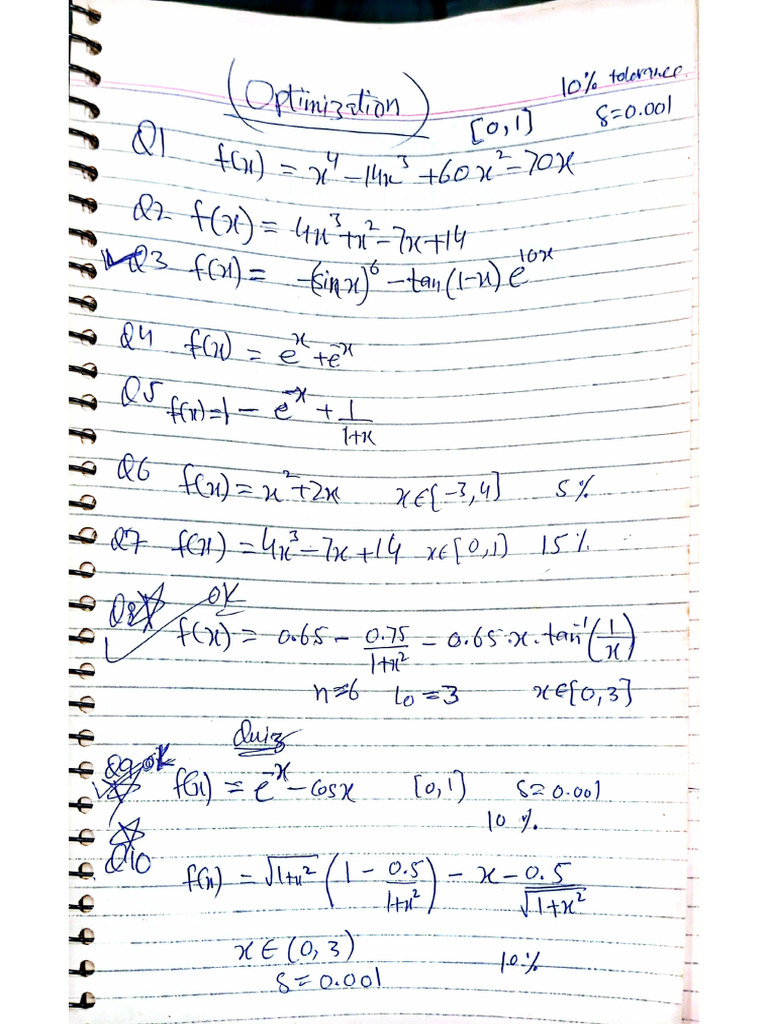 (Optimization)
10% tolerance
[0,1] δ=0.001
Q1 f(x) = x⁴ – 14x³ + 60x² – 70x
Q2 f(x) = 4x³ + x² – 7x + 14
Q3 f(x) = –(sin x)⁶ – tan(1–x) e^10x
Q4 f(x) = e^x + e^-x
Q5 f(x) = 1 – e^-x + 1/(1+x)
Q6 f(x) = x² + 2x x∈[-3,4] 5%
Q7 f(x) = 4x³ – 7x + 14 x∈[0,1] 15%
Q8 OK
f(x) = 0.65 – 0.75/(1+x²) – 0.65·x·tan⁻¹(1/x)
n=6 L₀=3 x∈[0,3]
Quiz
Q9 OK f(x) = e^-x – cosx [0,1] δ=0.001
10%
Q10 f(x) = √(1+x²) (1 – 0.5/(1+x²)) – x – 0.5/√(1+x²)
x∈(0,3) 10%
δ=0.001